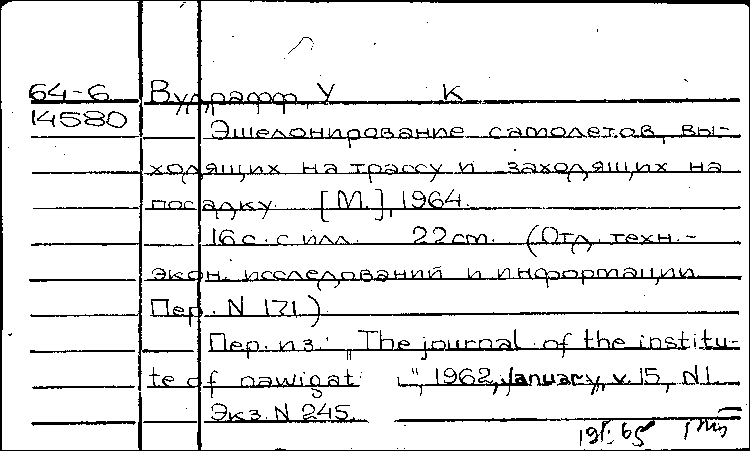 64-6 Вудрафф, У К
14580
Эшелонирование самолетов, вы-
ходящих на трассу и заходящих на
посадку. [М.], 1964.
16 с. с илл. 22 cm. (Отд. техн.-
экон. исследований и информации
Пер. N 171)
Пер. из: „The journal of the institu-
te of nawigat", 1962, january, v. 15, N1.
Экз. N 245.